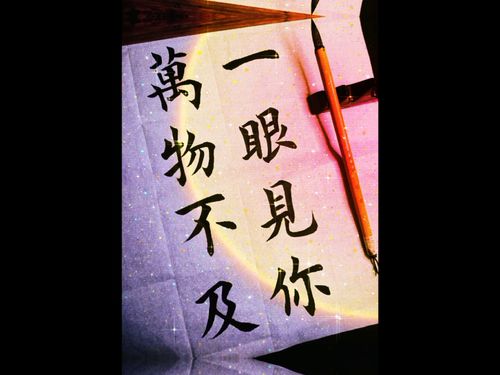 一眼見你
萬物不及